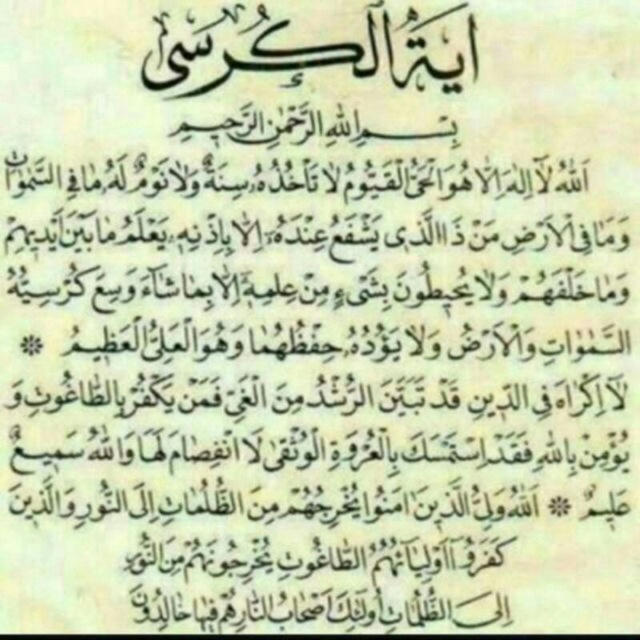 آية الكرسى
بسم الله الرحمن الرحيم
اَللهُ لَآ اِلٰهَ اِلَّا هُوَ الْحَيُّ الْقَيُّومُ لَا تَأْخُذُهُ سِنَةٌ وَلَا نَوْمٌ لَهُ مَا فِي السَّمٰوَاتِ
وَمَا فِي الْاَرْضِ مَنْ ذَا الَّذٖي يَشْفَعُ عِنْدَهُٓ اِلَّا بِاِذْنِهٖ يَعْلَمُ مَا بَيْنَ اَيْدٖيهِمْ
وَمَا خَلْفَهُمْ وَلَا يُحٖيطُونَ بِشَيْءٍ مِنْ عِلْمِهٖٓ اِلَّا بِمَا شَآءَ وَسِعَ كُرْسِيُّهُ
السَّمٰوَاتِ وَالْاَرْضَ وَلَا يَؤُدُهُ حِفْظُهُمَا وَهُوَ الْعَلِيُّ الْعَظٖيمُ ❊
لَآ اِكْرَاهَ فِي الدّٖينِ قَدْ تَبَيَّنَ الرُّشْدُ مِنَ الْغَيِّ فَمَنْ يَكْفُرْ بِالطَّاغُوتِ وَ
يُؤْمِنْ بِاللهِ فَقَدِ اسْتَمْسَكَ بِالْعُرْوَةِ الْوُثْقٰى لَا انْفِصَامَ لَهَا وَاللهُ سَمٖيعٌ
عَلٖيمٌ ❊ اَللهُ وَلِيُّ الَّذٖينَ اٰمَنُوا يُخْرِجُهُمْ مِنَ الظُّلُمَاتِ اِلَى النُّورِ وَالَّذٖينَ
كَفَرُٓوا اَوْلِيَآئُهُمُ الطَّاغُوتُ يُخْرِجُونَهُمْ مِنَ النُّورِ
اِلَى الظُّلُمَاتِ اُولٰٓئِكَ اَصْحَابُ النَّارِ هُمْ فٖيهَا خَالِدُونَ